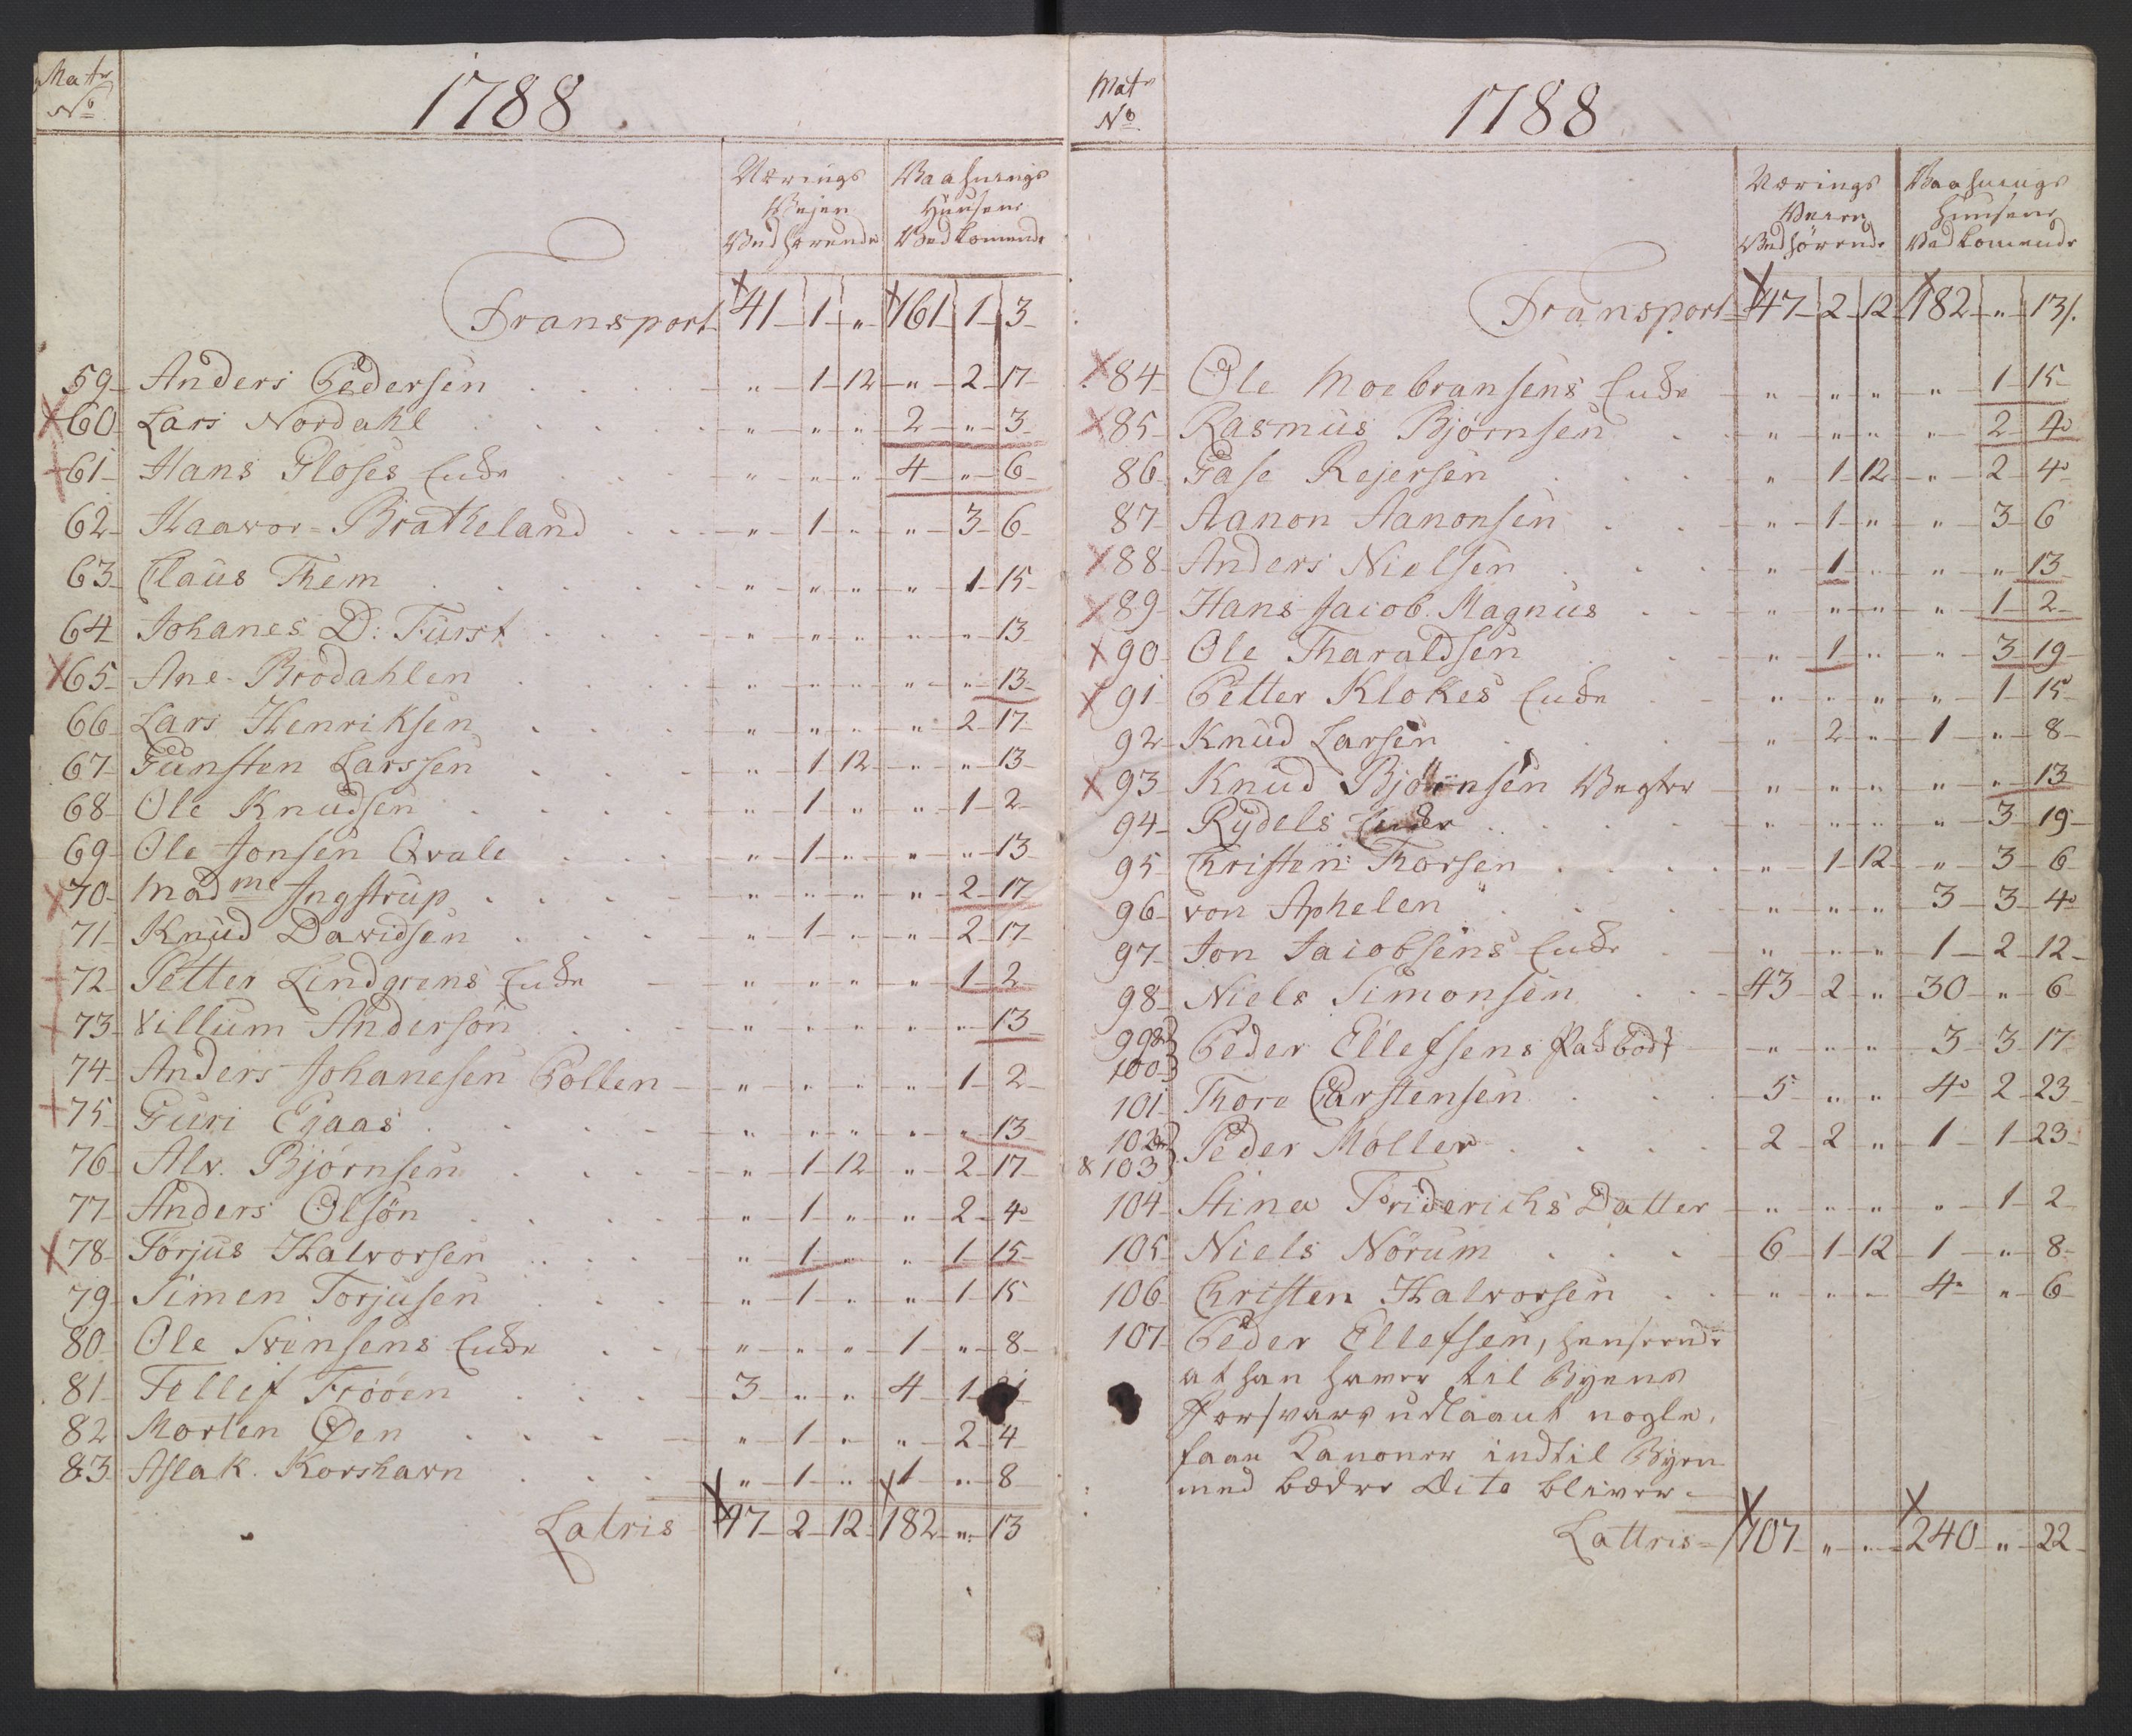 Matr
No
1788
Nærings
Vejen
Vedhørende
Vaahnings
Huusene
Vedkomende
Transport 41 1 " 161 1 3
59 Anders Pedersen " 1 12 " 2 17
60 Lars Nordahl " " " 2 " 3
61 Hans Gloses Enke " " " 4 " 6
62 Haavor Bratheland " 1 " " 3 6
63 Claus Them " " " " 1 15
64 Johanes D: Furst " " " " " 13
65 Ane Brodahlen " " " " " 13
66 Lars Henriksen " " " " 2 17
67 Gunsten Larssen " 1 12 " " 13
68 Ole Knudsen " 1 " " 1 2
69 Ole Jonsen Qvale " 1 " " " 13
70 Madme Ingstrup " " " " 2 17
71 Knud Davidsen " 1 " " 2 17
72 Petter Lindgrens Enke " " " " 1 2
73 Villum Anderson " " " " " 13
74 Anders Johanesen Pollen " " " " 1 2
75 Guri Egaas " " " " " 13
76 Alv. Bjørnsen " 1 12 " 2 17
77 Anders Olsön " 1 " " 2 4
78 Torjus Halvorsen " 1 " " 1 15
79 Simen Torjusen " 1 " " 1 15
80 Ole Svensens Enke " " " 1 " 8
81 Tellef Frøöen 3 " " 4 1
82 Morten Øen " 1 " " 2 4
83 Aslak Korshavn " 1 " 1 " 8
Latris 47 2 12 182 " 13
Matr
No
1788
Nærings
Veien
Vedhörende
Vaahnings
Huusene
Vedkomende
Transport 47 2 12 182 " 13
84 Ole Moebransens Enke " " " " 1 15
85 Rasmus Bjørnsen " " " " 2 4
86 Gase Rejersen " 1 12 " 2 4
87 Aanon Aanonsen " 1 " " 3 6
88 Anders Nielsen " 1 " " " 13
89 Hans Jacob Magnus " " " " 1 2
90 Ole Tharaldsen " 1 " " 3 19
91 Petter Klokes Enke " " " " 1 15
92 Knud Larsen " 2 " 1 " 8
93 Knud Björnsen Vegter " " " " " 13
94 Rydels Enke " " " " 3 19
95 Christen Thorsen " 1 12 " 3 6
96 von Aphelen " " " 3 3 4
97 Jon Jacobsens Enke " " " 1 2 12
98 Niels Simonsen 43 2 " 30 " 6
99 &
100 Peder Ellefsens Padbod " " " 3 3 17
101 Thore Carstensen 5 " " 4 2 23
102
& 103 Peder Møller 2 2 " 1 1 23
104 Stine Friderichs Datter " " " " 1 2
105 Niels Nörum 6 1 12 1 " 8
106 Christen Halvorsen " " " 4 " 6
107 Peder Ellefsen, henseende
at han haver til Byens
Forsvars udlaant nogle
faae Canoner indtil Byen
med bedre Dito bliver
Lattris 107 " " 240 " 22